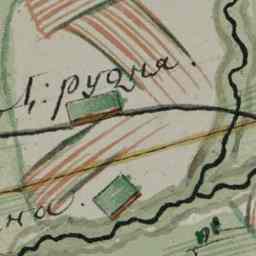 Д: рудня.
на.